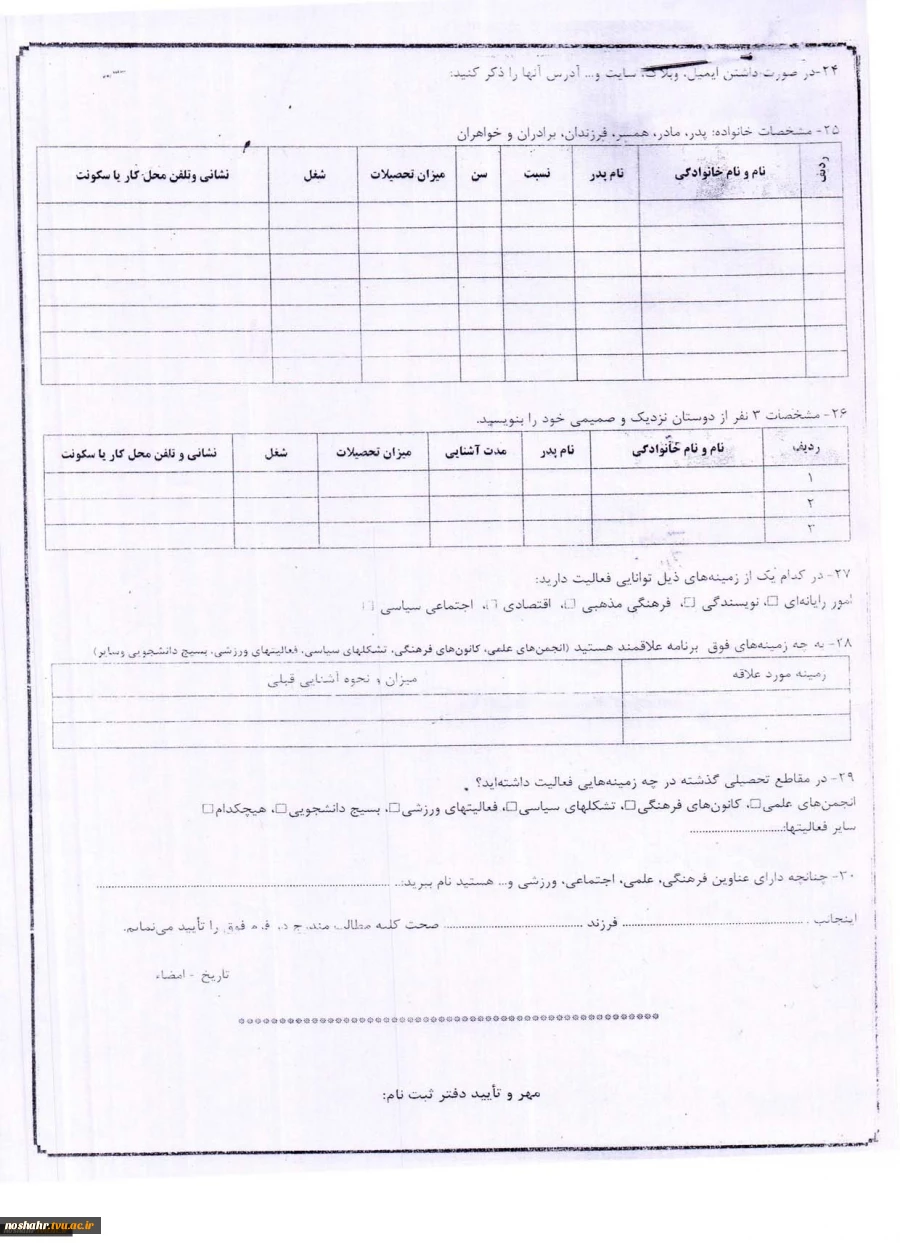 ۲۴-در صورت داشتن ایمیل، وبلاگ، سایت و... آدرس آنها را ذکر کنید:
۲۵- مشخصات خانواده: پدر، مادر، همسر، فرزندان، برادران و خواهران
ردیف نام و نام خانوادگی نام پدر نسبت سن میزان تحصیلات شغل نشانی وتلفن محل کار یا سکونت
۲۶- مشخصات ۳ نفر از دوستان نزدیک و صمیمی خود را بنویسید.
ردیف نام و نام خانوادگی نام پدر مدت آشنایی میزان تحصیلات شغل نشانی و تلفن محل کار یا سکونت
۱
۲
۳
۲۷- در کدام یک از زمینه‌های ذیل توانایی فعالیت دارید:
امور رایانه‌ای □، نویسندگی □، فرهنگی مذهبی □، اقتصادی □، اجتماعی سیاسی □
۲۸- به چه زمینه‌های فوق برنامه علاقمند هستید (انجمن‌های علمی، کانون‌های فرهنگی، تشکلهای سیاسی، فعالیتهای ورزشی، بسیج دانشجویی وسایر)
زمینه مورد علاقه میزان و نحوه آشنایی قبلی
۲۹- در مقاطع تحصیلی گذشته در چه زمینه‌هایی فعالیت داشته‌اید؟
انجمن‌های علمی□، کانون‌های فرهنگی□، تشکلهای سیاسی□، فعالیتهای ورزشی□، بسیج دانشجویی□، هیچکدام□
سایر فعالیتها:..............................
۳۰- چنانچه دارای عناوین فرهنگی، علمی، اجتماعی، ورزشی و... هستید نام ببرید:..............................
اینجانب .............................. فرزند .............................. صحت کلیه مطالب مندرج در فرم فوق را تأیید می‌نمایم.
تاریخ - امضاء
**************************************************
مهر و تأیید دفتر ثبت نام:
noshahr.tvu.ac.ir